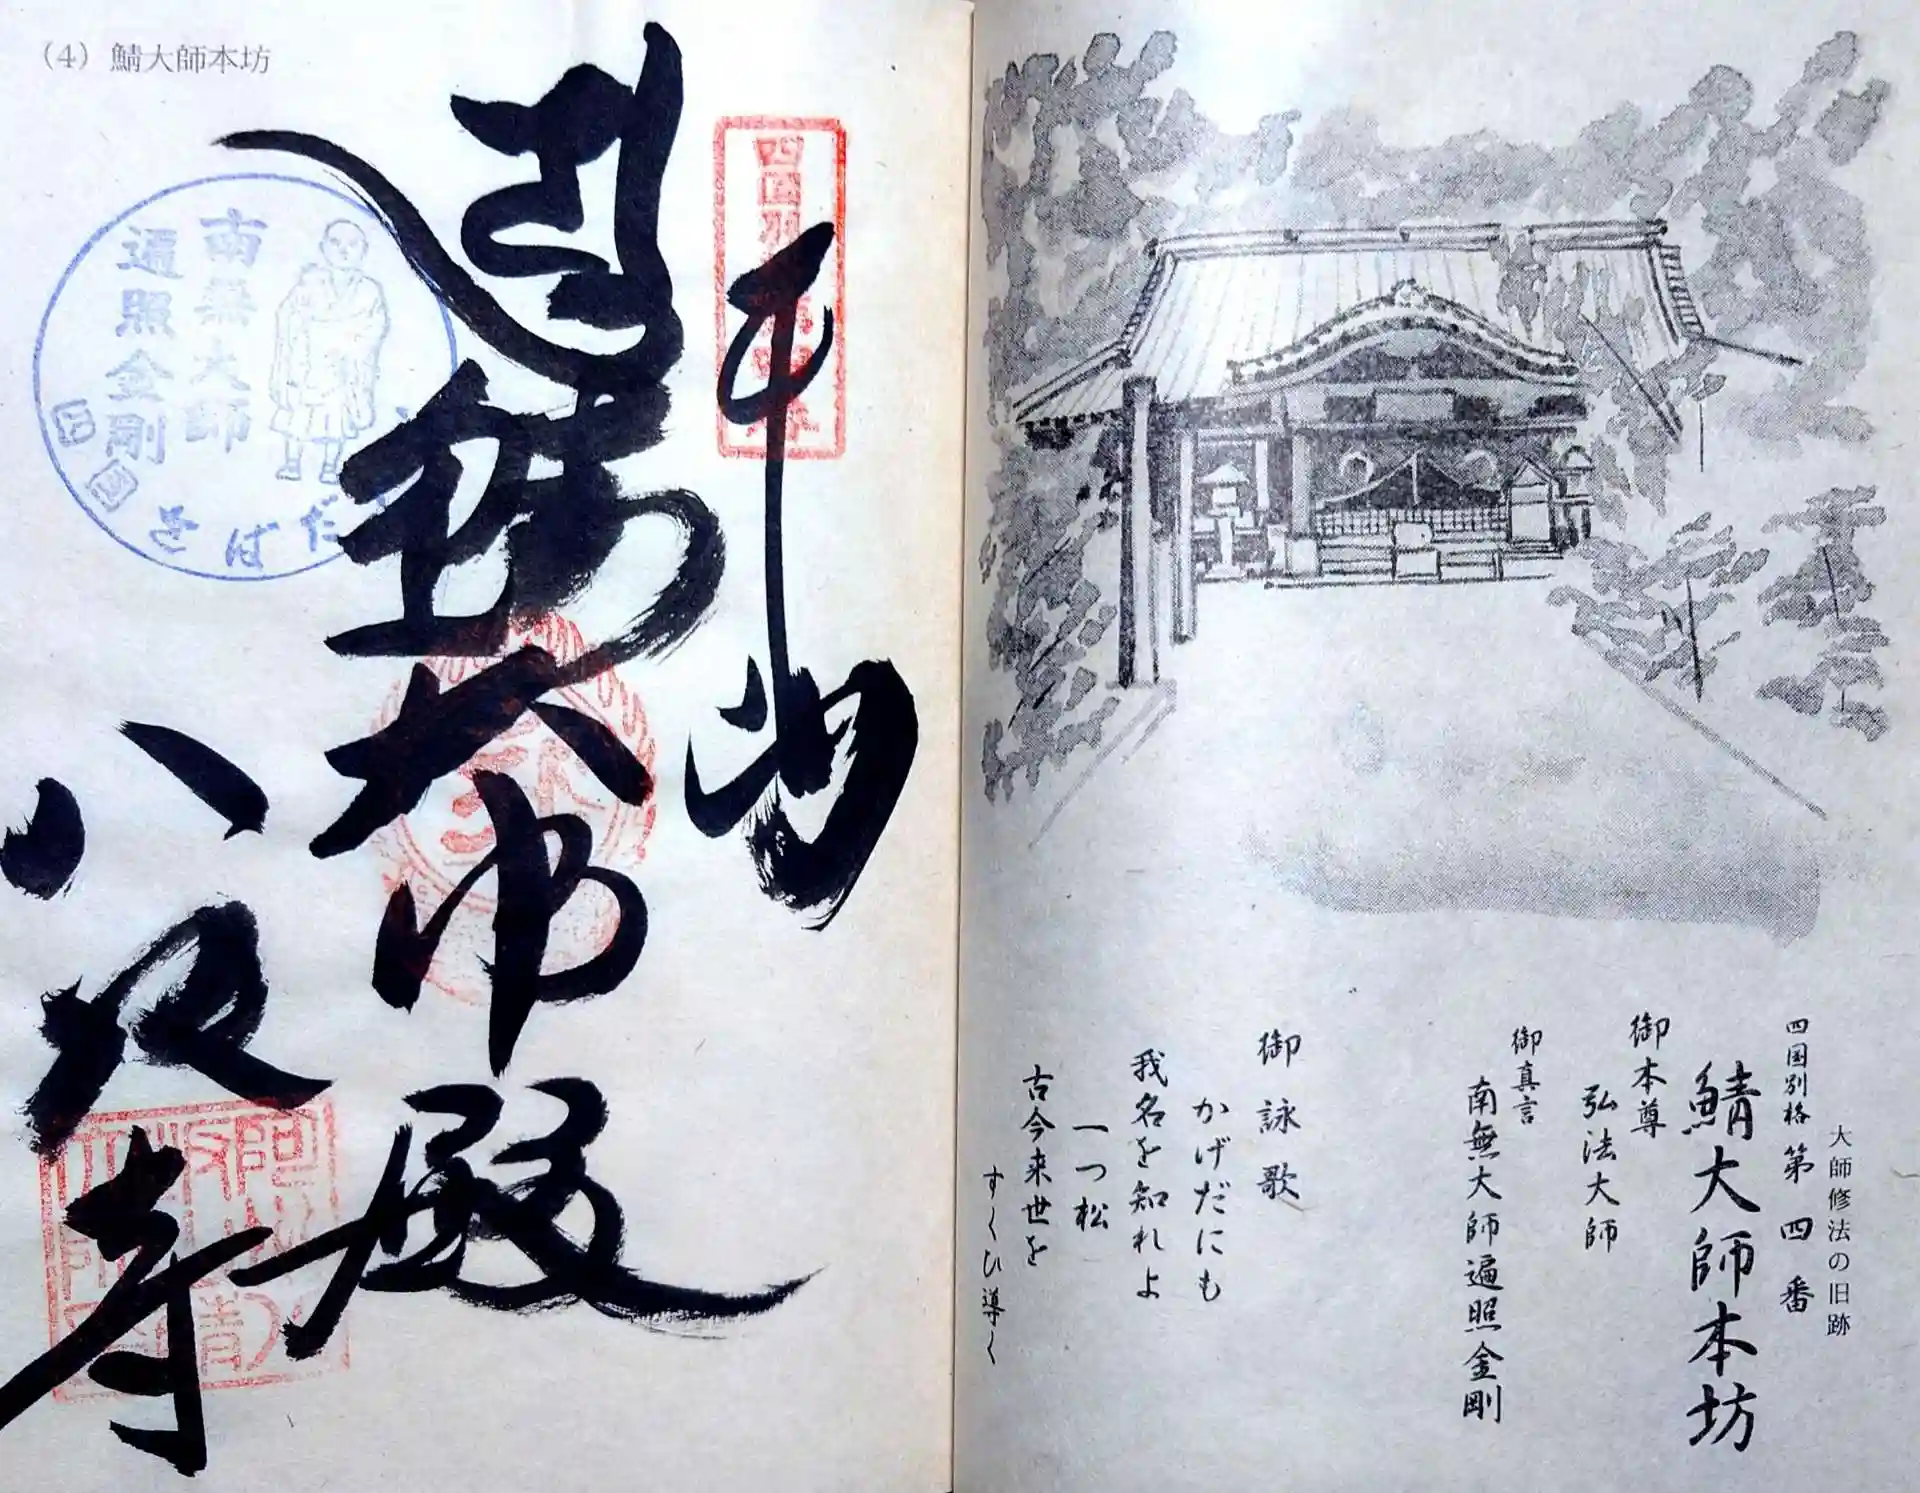 (4) 鯖大師本坊
奉納
鯖大師殿
八坂寺
南無大師
遍照金剛
さばだ
大師修法の旧跡
四国別格 第四番
鯖大師本坊
御本尊
弘法大師
御真言
南無大師遍照金剛
御詠歌
かげだにも
我名を知れよ
一つ松
古今来世を
すくひ導く